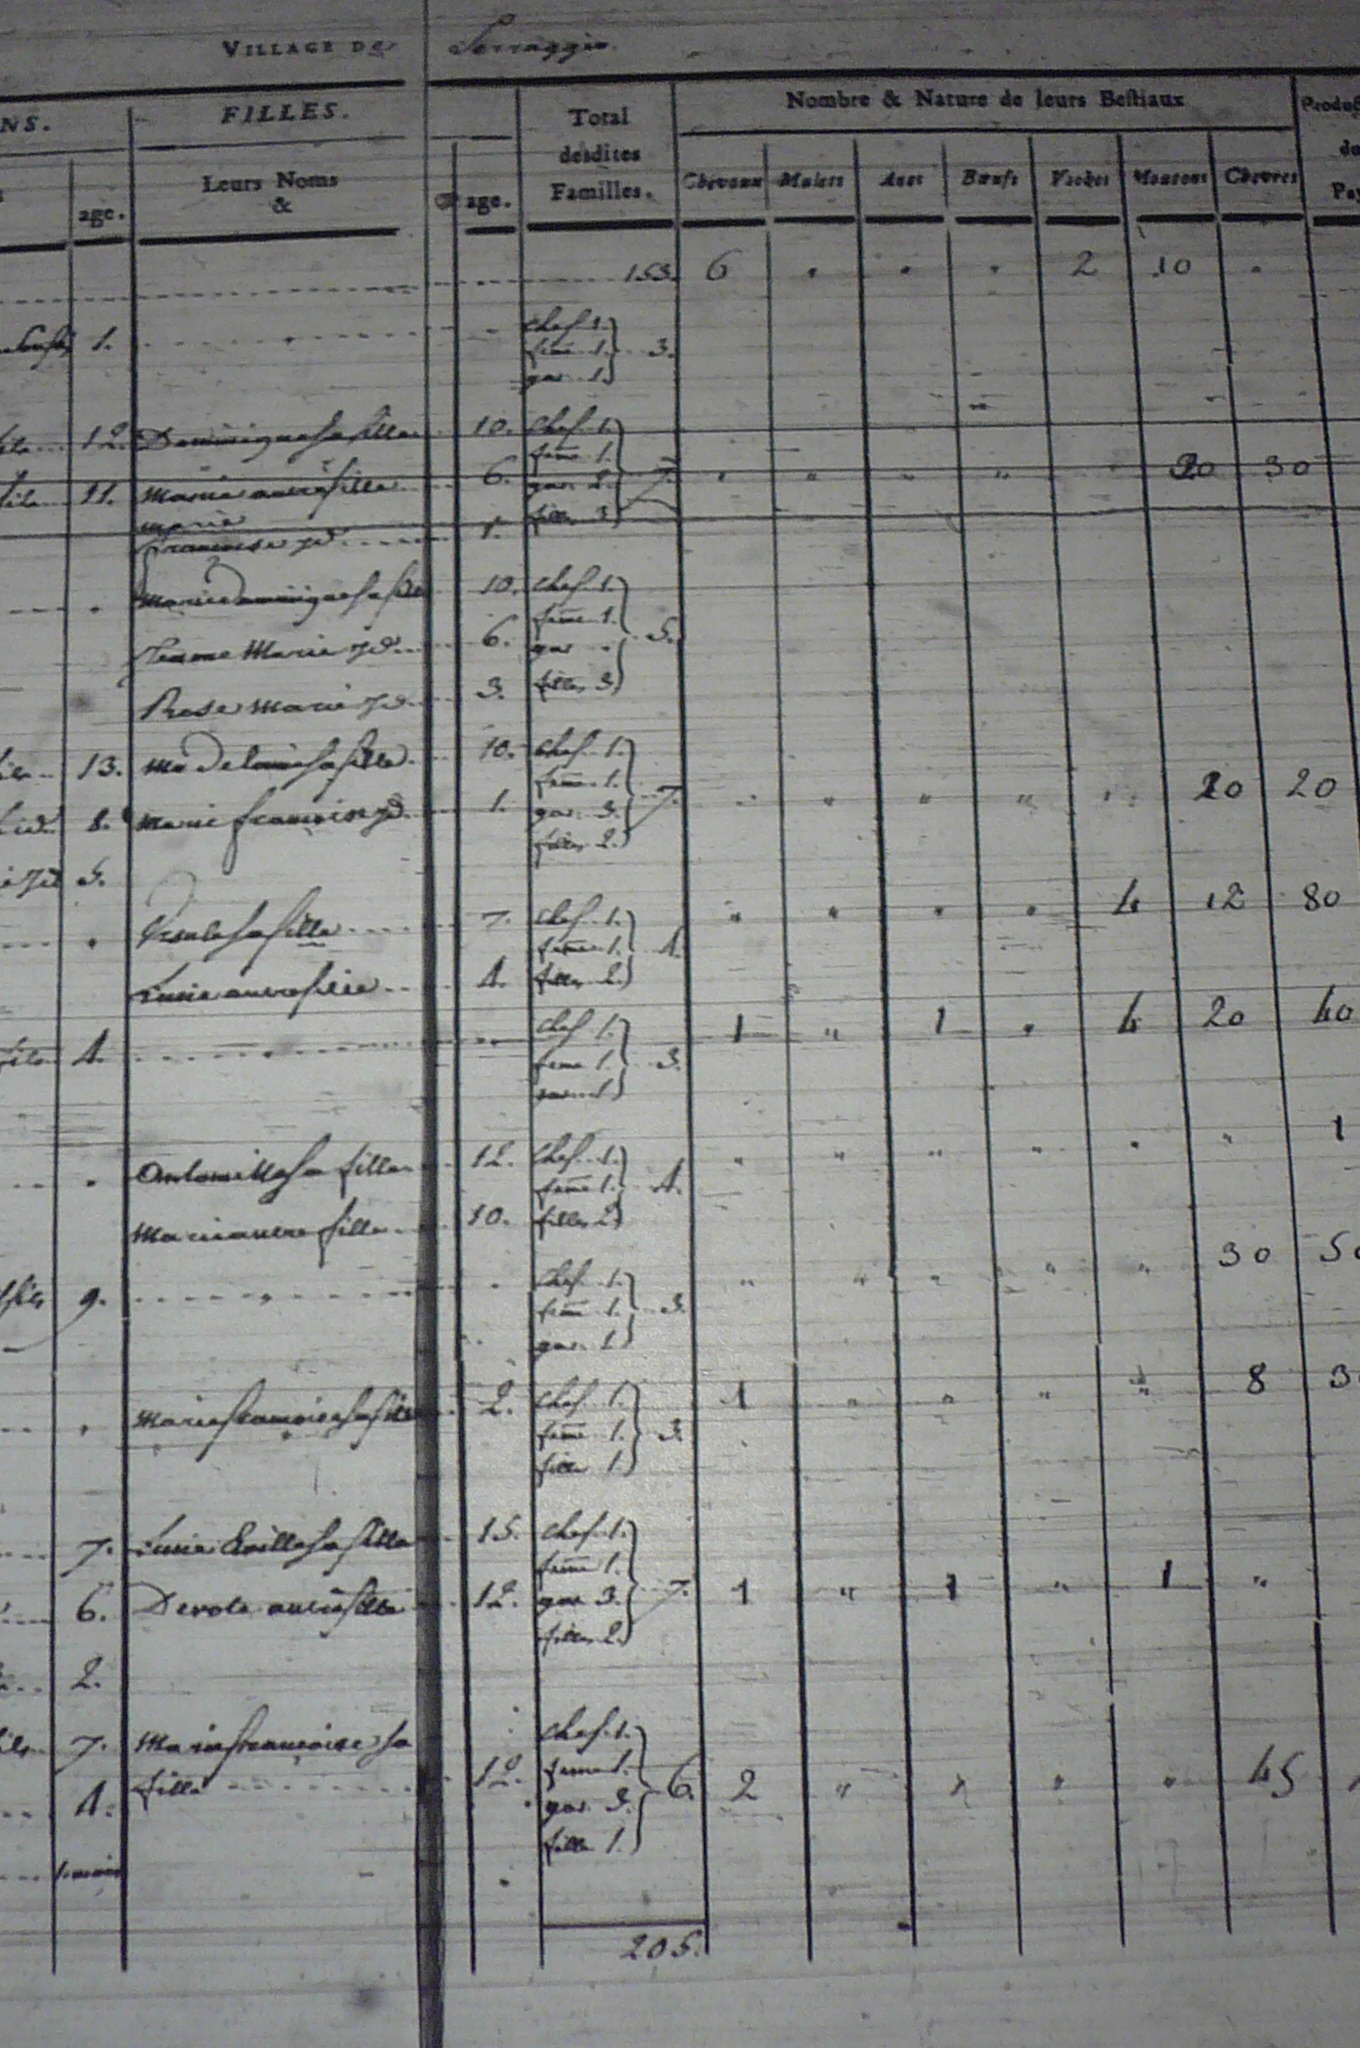 VILLAGE DE Serraggio
NS. FILLES.
Total desdites Familles.
Nombre & Nature de leurs Bestiaux
Produc
de
Pay
age. Leurs Noms & age. Chevaux Mulets Anes Bœufs Vaches Moutons Chevres
153. 6 " " " 2 10 "
1. chef 1.
feme 1. 3.
gar. 1.
12. Dominique sa fille 10. chef 1.
feme 1.
fils 11. Marie autre fille 6. gar. 2. 7. " " " " " 20 30
marie
francoise id. 1. filles 3.
Marie Dominique sa fille 10. chef 1.
feme 1.
Marie id. 6. gar. " 5.
Rose Marie id. 3. filles 3.
13. Madelaine sa fille 10. chef 1.
feme 1.
id. 8. Marie francoise id. 1. gar. 3. 7. " " " " " 20 20
filles 2.
id. 5.
Ursule sa fille 7. chef 1. " " " " 4 12 80
feme 1. 4.
Lucie autre fille 4. filles 2.
chef 1. 1 " 1 " 4 20 40
fils 4. feme 1. 3.
gar. 1.
Antoinette sa fille 12. chef 1. " " " " " " 1
feme 1. 4.
Marie autre fille 10. filles 2.
chef 1. " " " " " 30 50
fils 9. feme 1. 3.
gar. 1.
Marie francoise sa fille 2. chef 1. 1 " " " " 8 3
feme 1. 3.
fille 1.
7. Lucie sa fille 15. chef 1.
feme 1.
6. Devote autre fille 12. gar. 3. 7. 1 " 1 " 1 "
filles 2.
2.
fils 7. Marie francoise sa chef 1.
fille 12. feme 1. 6. 2 " " " 45
4. gar. 3.
fille 1.
205.